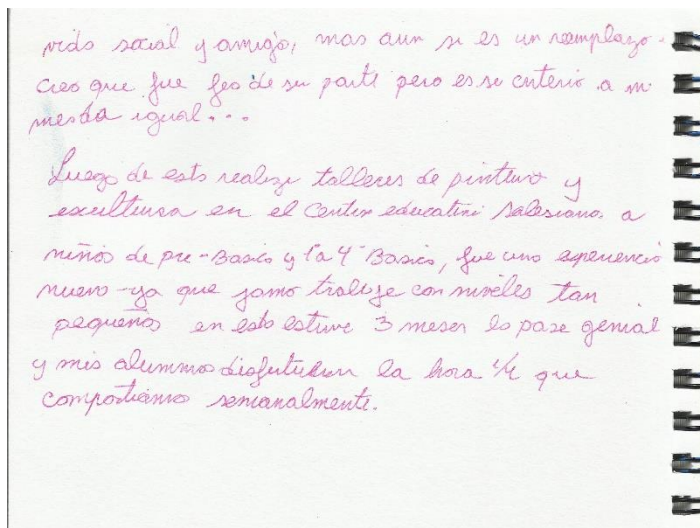 vida social y amigos, mas aun si es un reemplazo.
creo que fue feo de su parte pero es su criterio a mi
me da igual...
Luego de esto realize talleres de pintura y
escultura en el Centro educativo Salesianos a
niños de pre-Basica y 1a 4° Basico, fue una experiencia
nueva ya que jamas trabaje con niveles tan
pequeños en esto estuve 3 meses lo pase genial
y mis alumnos disfrutaban la hora 1/2 que
compartiamos semanalmente.